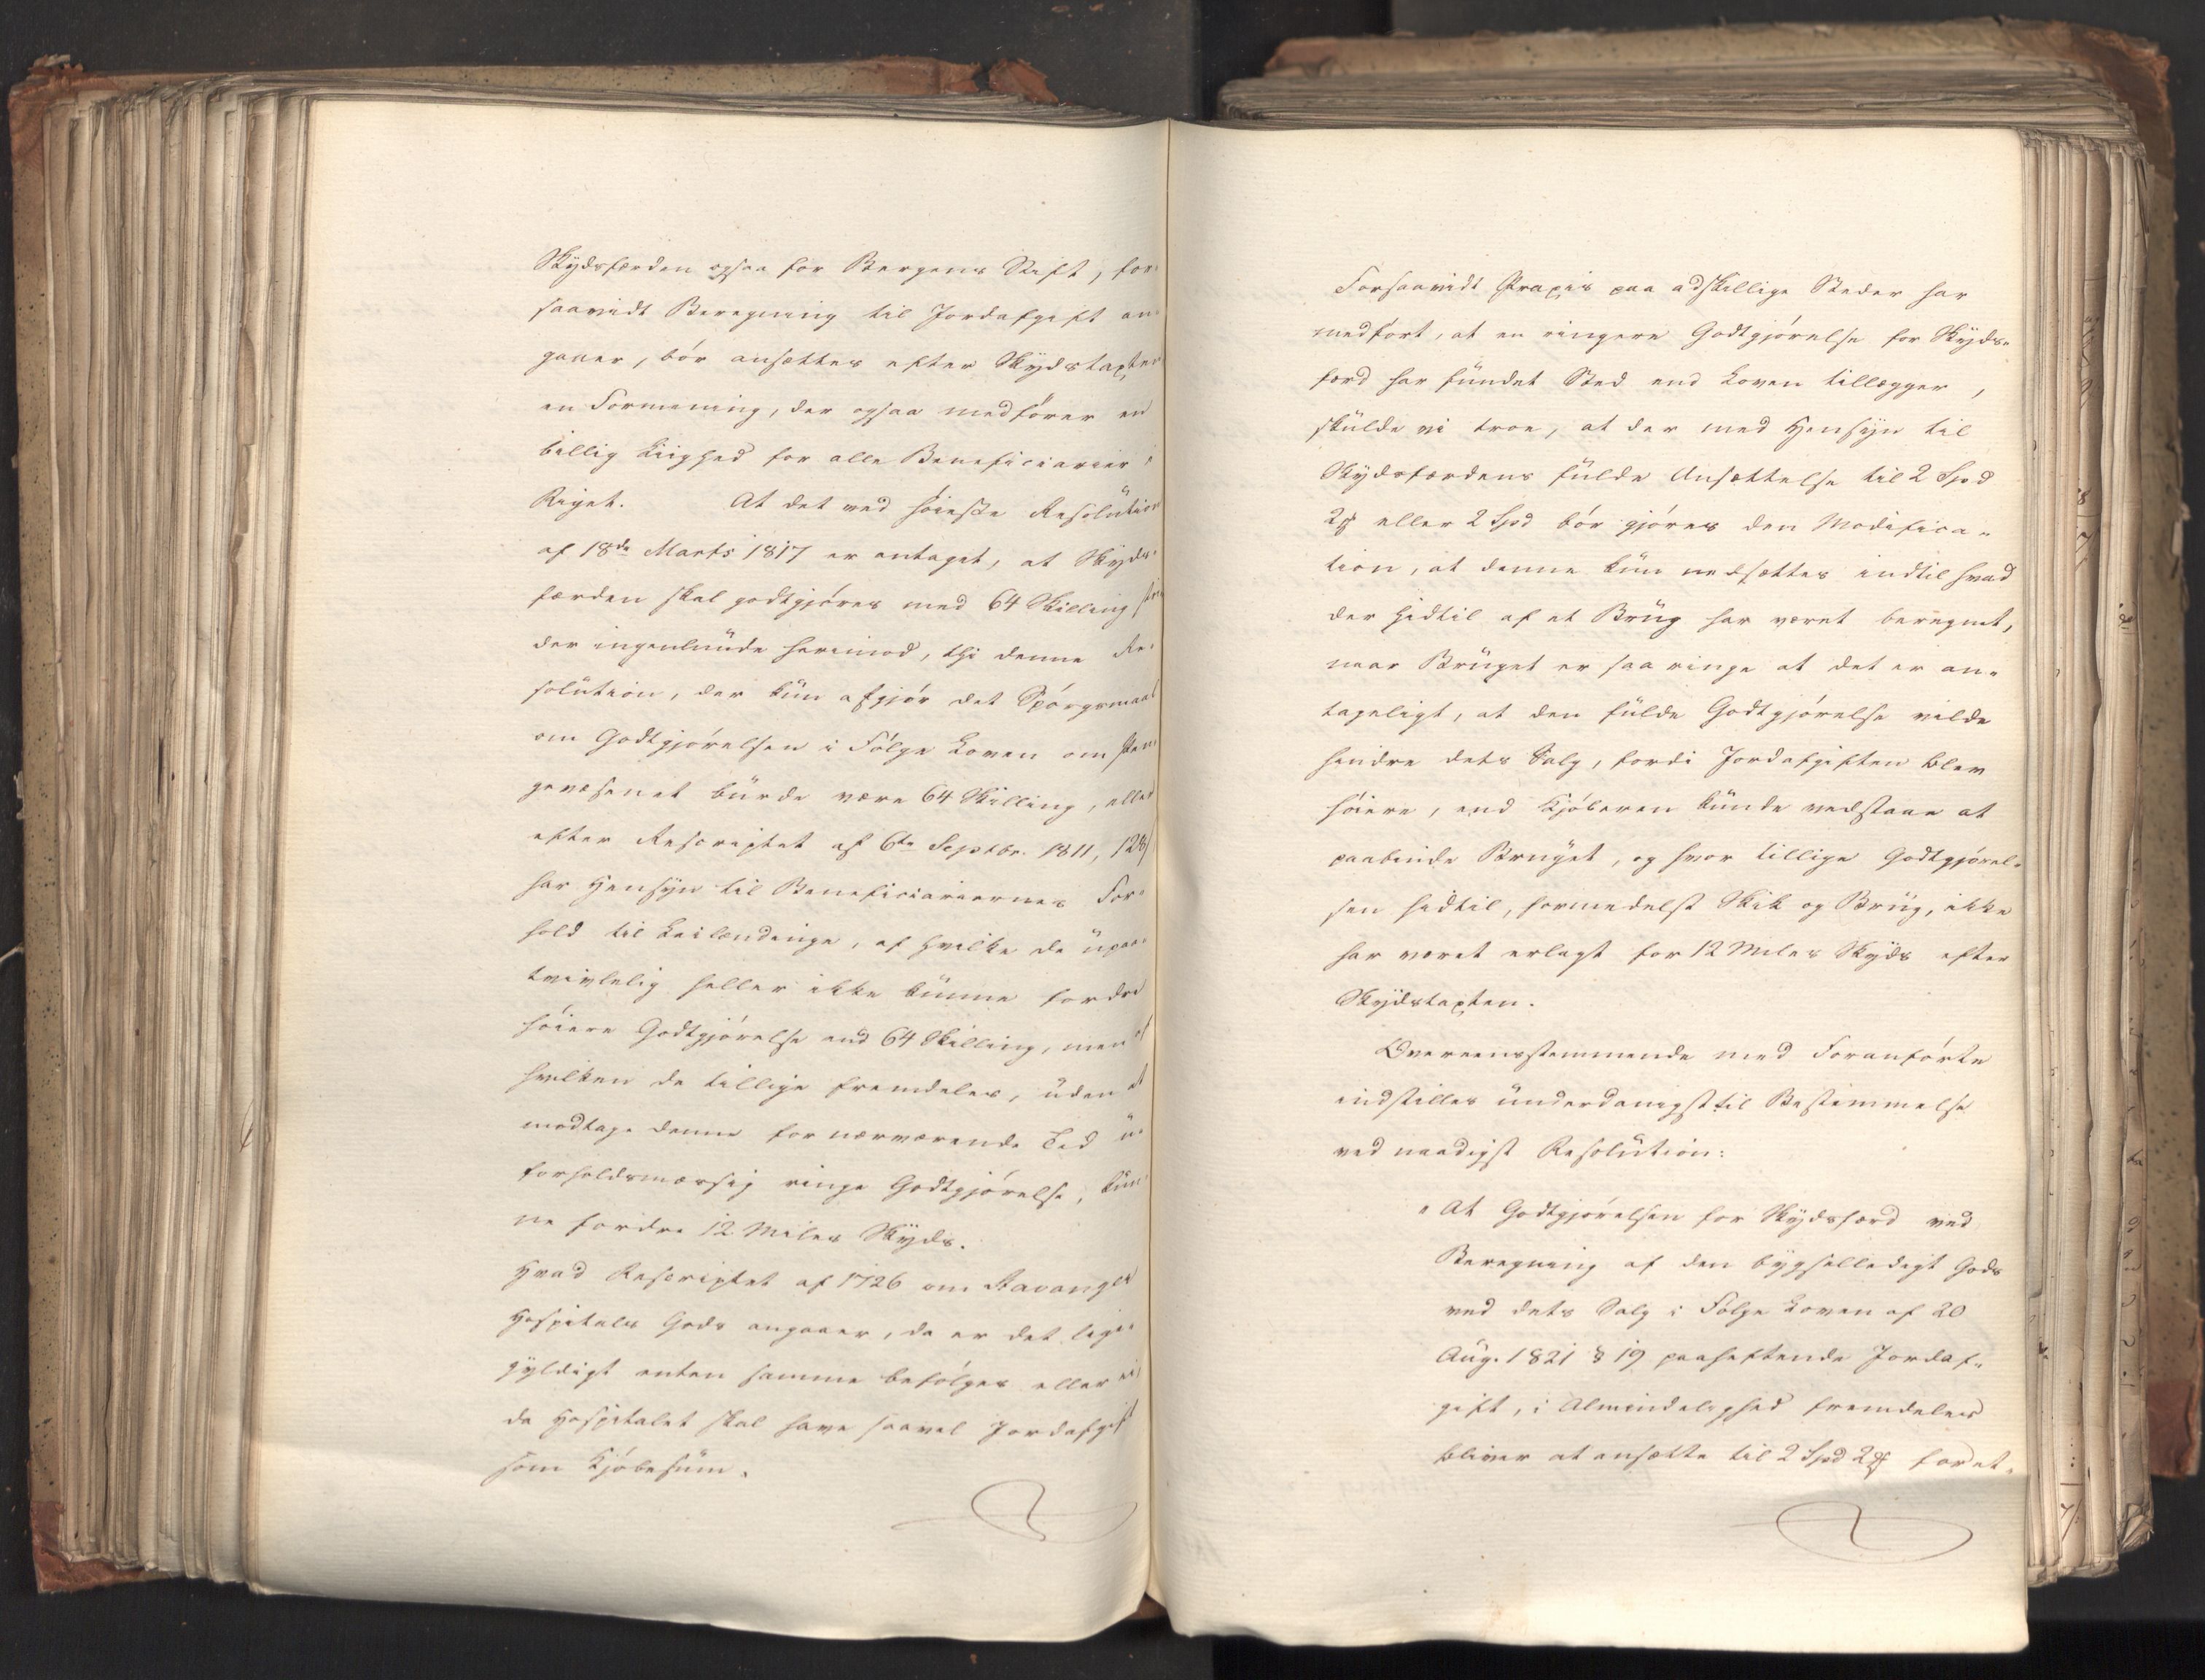 Skydsfærden ogsaa for Bergens Stift, for-
saavidt Beregning til Jordafgift an-
gaaer, bör ansættes efter Skydstaxten
en Formening, der ogsaa medförer en
billig Liighed for alle Beneficiarier i
Riget. At det ved höieste Resolution
af 18de Marts 1817 er antaget, at Skyds-
færden skal godtgjöres med 64 Skilling stri
der ingenlunde herimod, thi denne Re-
solution, der kun afgjör det Spörgsmaal
om Godtgjörelsen i Fölge Loven om Pen
gevæsenet burde være 64 Skilling, eller
efter Rescriptet af 6te Septbr. 1811, 128/
har Hensyn til Beneficiariernes For-
hold til Leilendinge, af hvilke de upaa-
tvivlelig heller ikke kunne fordre
höiere Godtgjörelse end 64 Skilling, men af
hvilken de tillige fremdeles, uden at
modtage denne for nærværende Tid u-
forholdsmæssig ringe Godtgjörelse, kun-
ne fordre 12 Miles Skyds.
Hvad Rescriptet af 1726 om Stavanger
Hospitals Gods angaaer, da er det lige-
gyldigt enten samme befölges eller ei,
da Hospitalet skal have saavel Jordafgift
som Kjöbesum.
Forsaavidt Praxis paa adskillige Steder har
medfört, at en ringere Godtgjörelse for Skyds-
færd har fundet Sted end Loven tillægger,
skulde vi troe, at der med Hensyn til
Skydsfærdens fulde Ansættelse til 2 Spd
2ß eller 2 Spd bör gjöres den Modifica-
tion, at denne kun nedsættes indtil hvad
der hidtil af et Brug har været beregnet,
naar Bruget er saa ringe at det er an-
tageligt, at den fulde Godtgjörelse vilde
hindre dets Salg, fordi Jordafgiften blev
höiere, end Kjöberen kunde vedstaae at
paabinde Bruget, og hvor tillige Godtgjörel-
sen hidtil, formedelst Skik og Brug, ikke
har været erlagt for 12 Miles Skyds efter
Skydstaxten.
Overeensstemmende med Foranförte
indstilles underdanigst til Bestemmelse
ved naadigst Resolution:
"At Godtgjörelsen for Skydsfærd ved
Beregning af den bygselledigt Gods
ved dets Salg i Fölge Loven af 20
Aug. 1821 § 19 paaheftende Jordaf-
gift, i Almindelighed fremdeles
bliver at ansætte til 2 Spd 2ß for et-